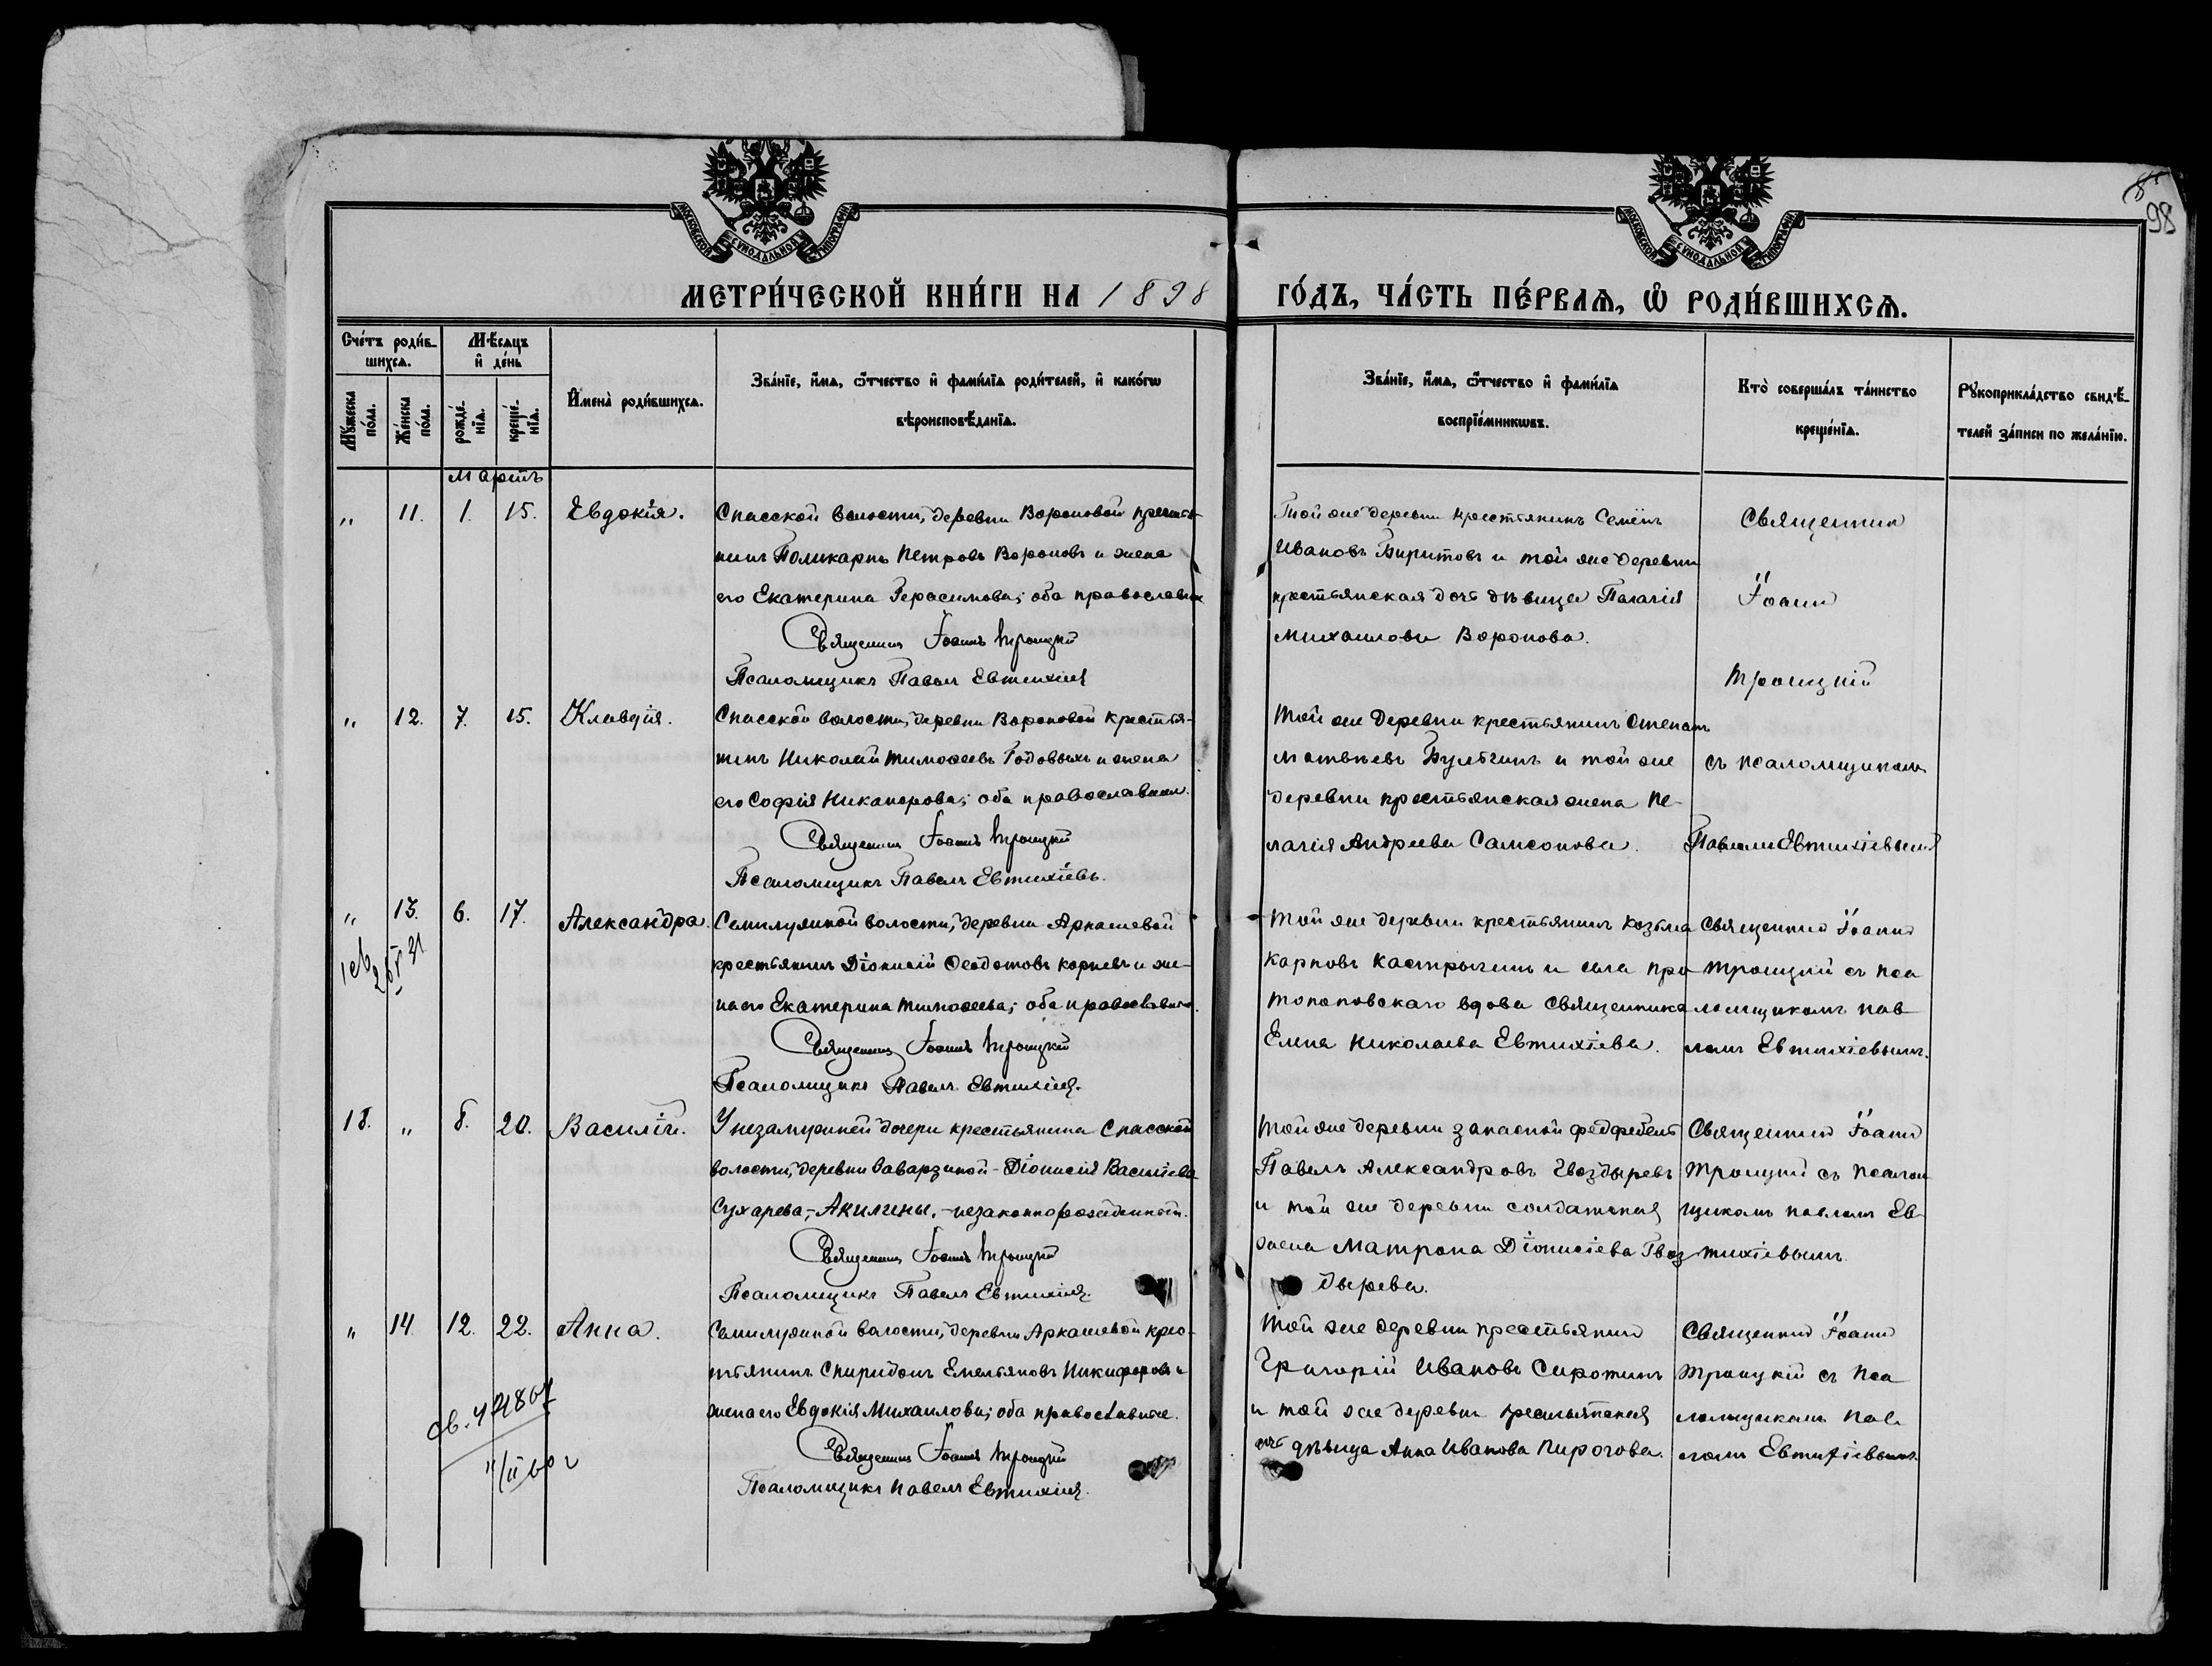 98
МОСКОВСКОЙ СѴНОДАЛЬНОЙ ТИПОГРАФІИ
МОСКОВСКОЙ СѴНОДАЛЬНОЙ ТИПОГРАФІИ
МЕТРИ́ЧЕСКОЙ КНИ́ГИ НА 1898 ГО́ДЪ, ЧА́СТЬ ПЕ́РВАѦ, Ѡ РОДИ́ВШИХСѦ.
Сче́тъ роди́в-
шихсѧ.
Мꙋжеска по́ла.
Же́нска по́ла.
Мѣ́сяцъ
и де́нь
рожде́нїѧ.
креще́нїѧ.
Имена̀ роди́вшихсѧ.
Зва́нїе, и́мѧ, ѻ҆́тчество и҆ фами́лїѧ роди́телей, и҆ како́гѡ
вѣроисповѣ́данїѧ.
Зва́нїе, и́мѧ, ѻ҆́тчество и҆ фами́лїѧ
воспрїе́мникѡвъ.
Кто̀ соверша́лъ та́инство
креще́нїѧ.
Рꙋкоприкла́дство свидѣ́-
телей за́писи по жела́нїю.
Мартъ
„ 11. 1. 15. Евдокія.
Спасской волости, деревни Вороновой крестья-
нинъ Поликарпъ Петровъ Вороновъ и жена
его Екатерина Герасимова; оба православные
Священникъ Іоаннъ Троицкій
Псаломщикъ Павелъ Евтихіевъ
Той же деревни крестьянинъ Семёнъ
Ивановъ и той же деревни
крестьянская дочь дѣвица Палагія
Михаилова Воронова.
Священникъ
Іоаннъ
Троицкій
„ 12. 7. 15. Клавдія.
Спасской волости, деревни Вороновой крестья-
нинъ Николай Тимофеевъ Годовыхъ и жена
его Софія Никанорова; оба православные.
Священникъ Іоаннъ Троицкій
Псаломщикъ Павелъ Евтихіевъ.
Той же деревни крестьянинъ Степанъ
Матвѣевъ Булыгинъ и той же
деревни крестьянская жена Пе-
лагія Андреева Самсонова.
съ псаломщикомъ
Павломъ Евтихіевымъ
„ 13. 6. 17. Александра.
Семилужной волости, деревни Аркашевой
крестьянинъ Діонисій Феодотовъ Корневъ и же-
на его Екатерина Тимофеева; оба православные.
Священникъ Іоаннъ Троицкій
Псаломщикъ Павелъ Евтихіевъ.
Той же деревни крестьянинъ Козьма
Карповъ Кастрыгинъ и села Про
топоповскаго вдова священника
Елена Николаева Евтихіева.
Священникъ Іоаннъ
Троицкій съ пса
ломщикомъ Пав
ломъ Евтихіевымъ.
18. „ 8. 20. Василій.
У незамужней дочери крестьянина Спасской
волости, деревни Ваварзиной - Діонисія Василіева
Сухарева, - Акилины, - незаконнорожденный.
Священникъ Іоаннъ Троицкій
Псаломщикъ Павелъ Евтихіевъ.
Той же деревни запасной фельдфебель
Павелъ Александровъ Гвоздыревъ
и той же деревни солдатская
жена Матрона Діонисіева Гвоз
дырева.
Священникъ Іоаннъ
Троицкій съ псалом
щикомъ Павломъ Ев
тихіевымъ.
„ 14. 12. 22. Анна.
Семилужной волости, деревни Аркашевой крес-
тьянинъ Спиридонъ Емельяновъ Никифоровъ и
жена его Евдокія Михаилова; оба православные.
Священникъ Іоаннъ Троицкій
Псаломщикъ Павелъ Евтихіевъ.
Той же деревни крестьянинъ
Григорій Ивановъ Сиротинъ
и той же деревни крестьянская
дочь дѣвица Анна Иванова Пирогова.
Священникъ Іоаннъ
Троицкій съ пса
ломщикомъ Пав
ломъ Евтихіевымъ.